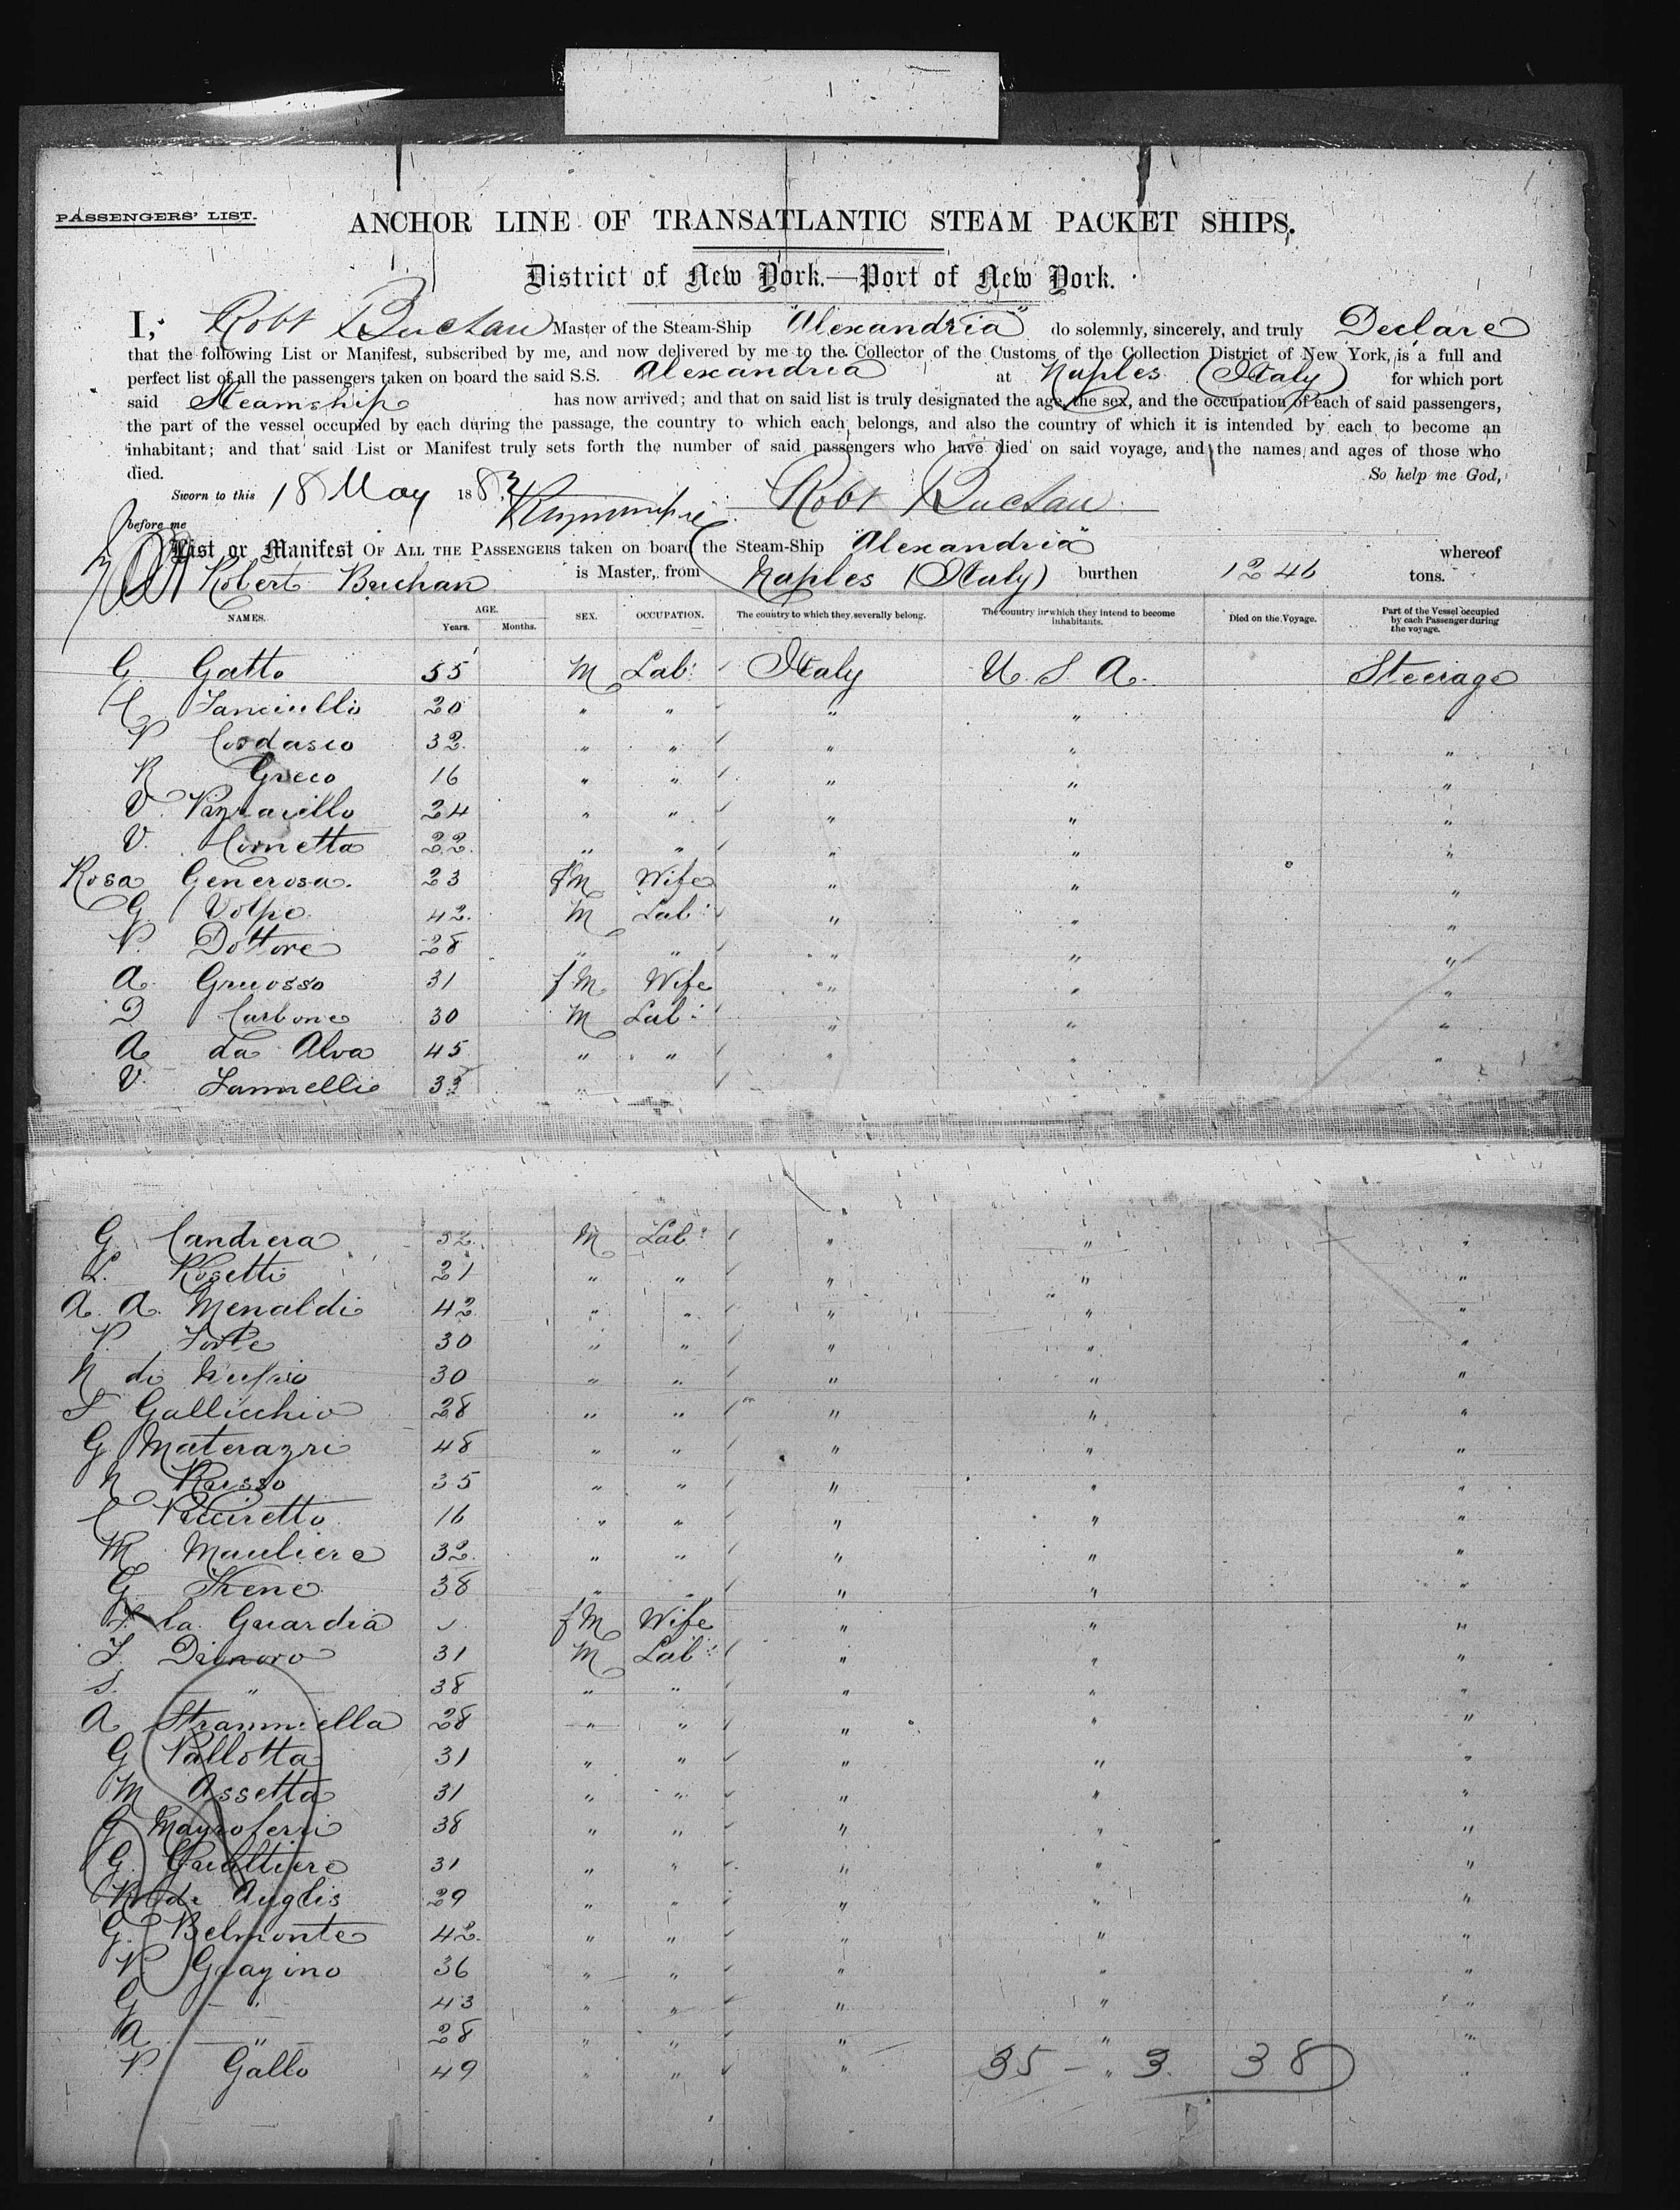 PASSENGERS' LIST.
ANCHOR LINE OF TRANSATLANTIC STEAM PACKET SHIPS.
District of New York.—Port of New York.
I, Robt Buchan Master of the Steam-Ship "Alexandria" do solemnly, sincerely, and truly Declare
that the following List or Manifest, subscribed by me, and now delivered by me to the Collector of the Customs of the Collection District of New York, is a full and
perfect list of all the passengers taken on board the said S.S. Alexandria at Naples (Italy) for which port
said Steamship has now arrived; and that on said list is truly designated the age, the sex, and the occupation of each of said passengers,
the part of the vessel occupied by each during the passage, the country to which each belongs, and also the country of which it is intended by each to become an
inhabitant; and that said List or Manifest truly sets forth the number of said passengers who have died on said voyage, and the names and ages of those who
died. So help me God,
Sworn to this 18 May 1883 Robt Buchan
before me
List or Manifest OF ALL THE PASSENGERS taken on board the Steam-Ship "Alexandria" whereof
Robert Buchan is Master, from Naples (Italy) burthen 1246 tons.
NAMES. AGE. Years. Months. SEX. OCCUPATION. The country to which they severally belong. The country in which they intend to become inhabitants. Died on the Voyage. Part of the Vessel occupied by each Passenger during the voyage.
G Gatto 55 M Lab: Italy U. S. A. Steerage
C 20 " " " " "
P Cordasco 32 " " " " "
R Greco 16 " " " " "
V. 24 " " " " "
V. Cornetta 22 " " " " "
Rosa Generosa 23 fM Wife " " "
G Volpe 42 M Lab: " " "
P. Dottore 28 " " " " "
A Gruosso 31 fM Wife " " "
D Carbone 30 M Lab: " " "
A da Alva 45 " " " " "
V. 33 "
G Candrera 32 M Lab: " " "
L. Rosetti 21 " " " " "
A. A. Menaldi 42 " " " " "
P. Forte 30 " " " " "
N di 30 " " " " "
F Gallicchio 28 " " " " "
G Materazri 48 " " " " "
N Russo 35 " " " " "
C Picciretto 16 " " " " "
M Mauliere 32 " " " " "
G 38 " " " " "
la Guardia fM Wife " " "
F. Dinoro 31 M Lab: " " "
S. " 38 " " " " "
A Stramiella 28 " " " " "
G Pallotta 31 " " " " "
M Assetta 31 " " " " "
G 38 " " " " "
G. Gualtiere 31 " " " " "
R di Anglis 29 " " " " "
G. Belmonte 42 " " " " "
P Grazino 36 " " " " "
G " 43 " " " " "
A " 28 " " " " "
P. Gallo 49 " " " " "
35 - 3. 38